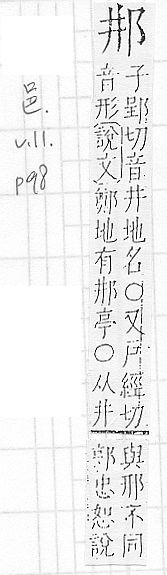 𨙷
子郢切音井地名○又戶經切
音形說文鄭地有𨙷亭○从井
與邢不同
郭忠恕說
邑.
v.11.
p98